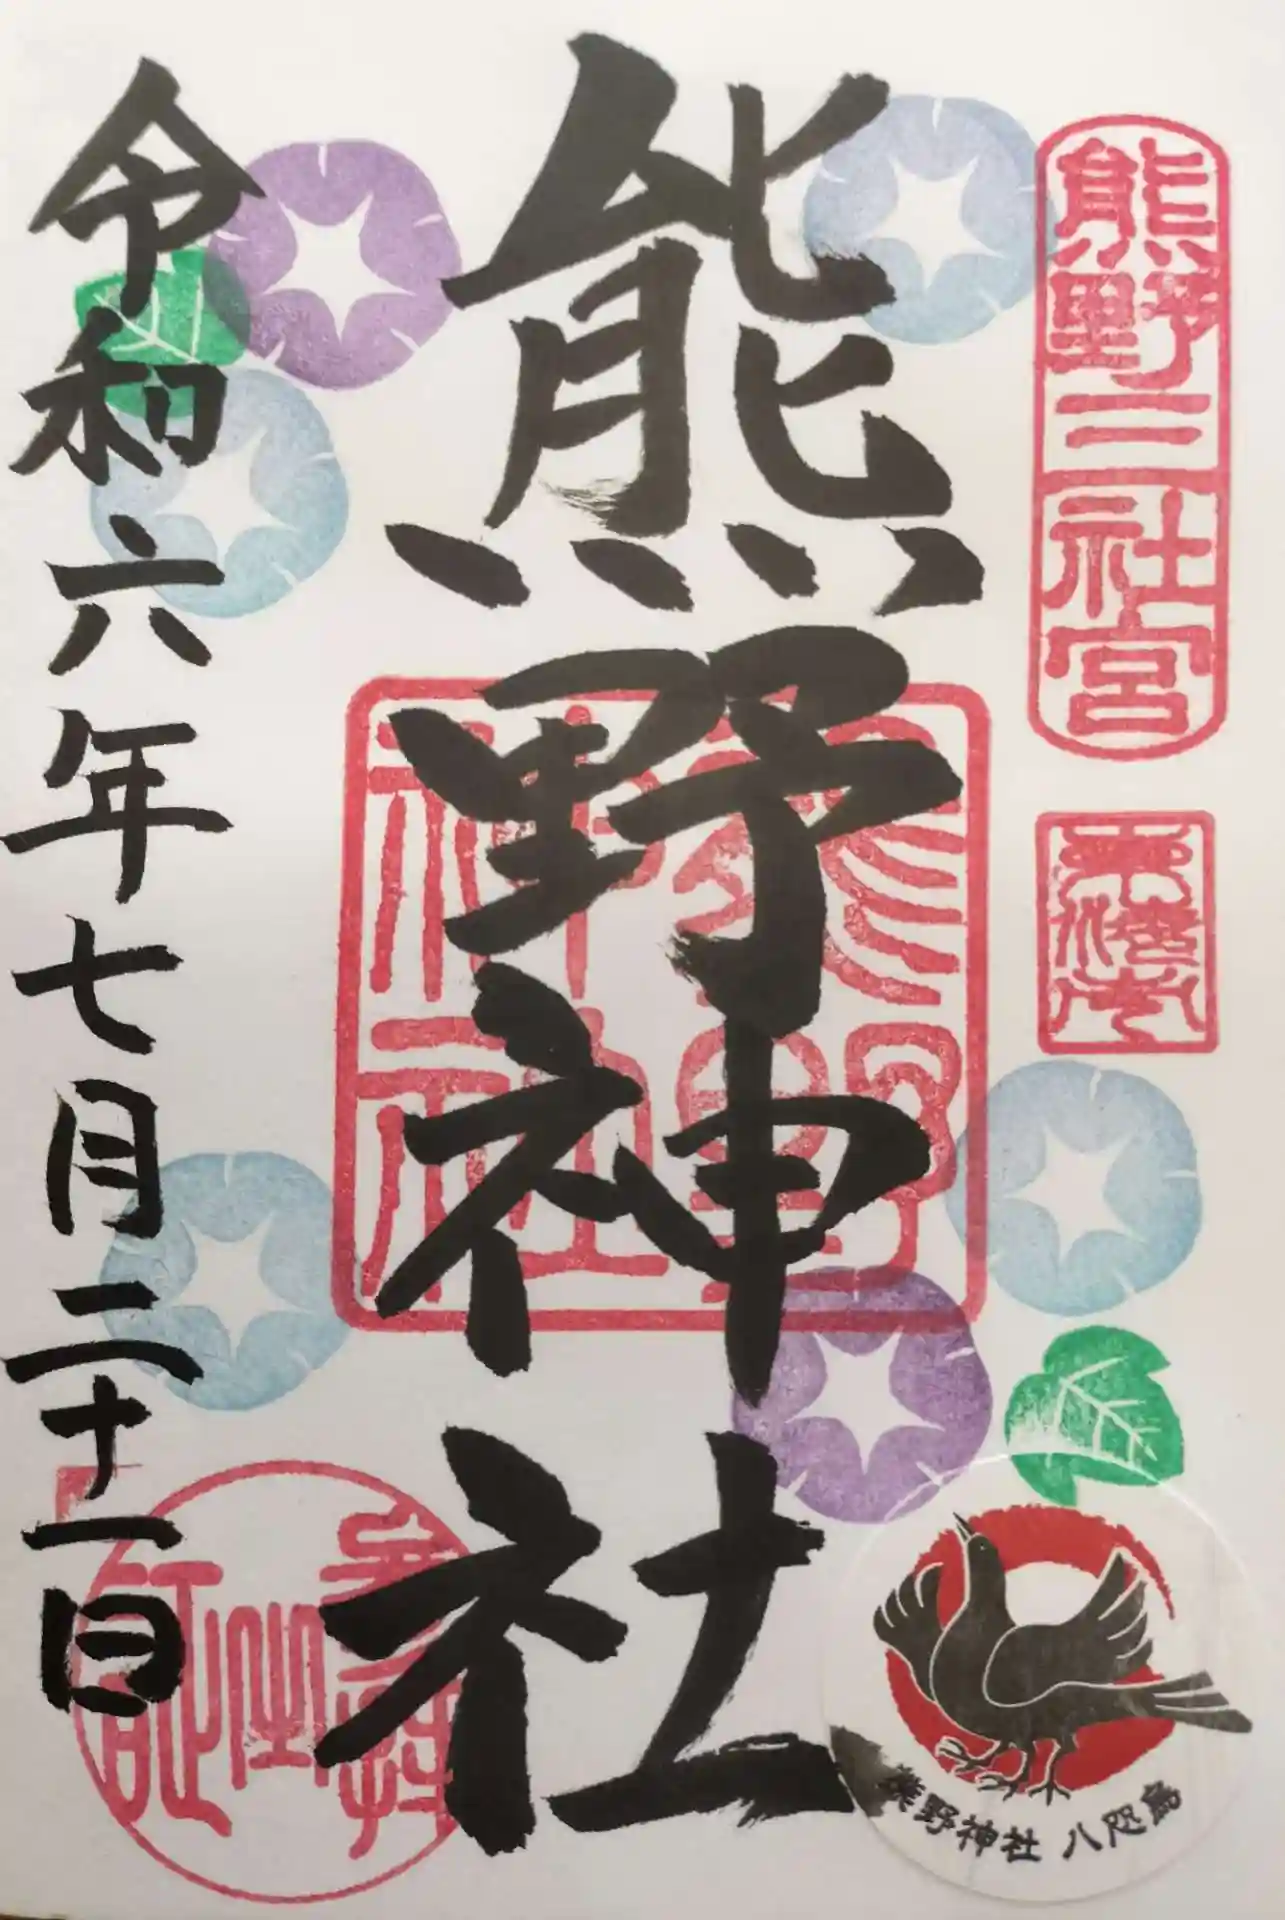 熊野三社宮
熊野神社
熊野神社
令和六年七月二十一日
熊野神社 八咫烏